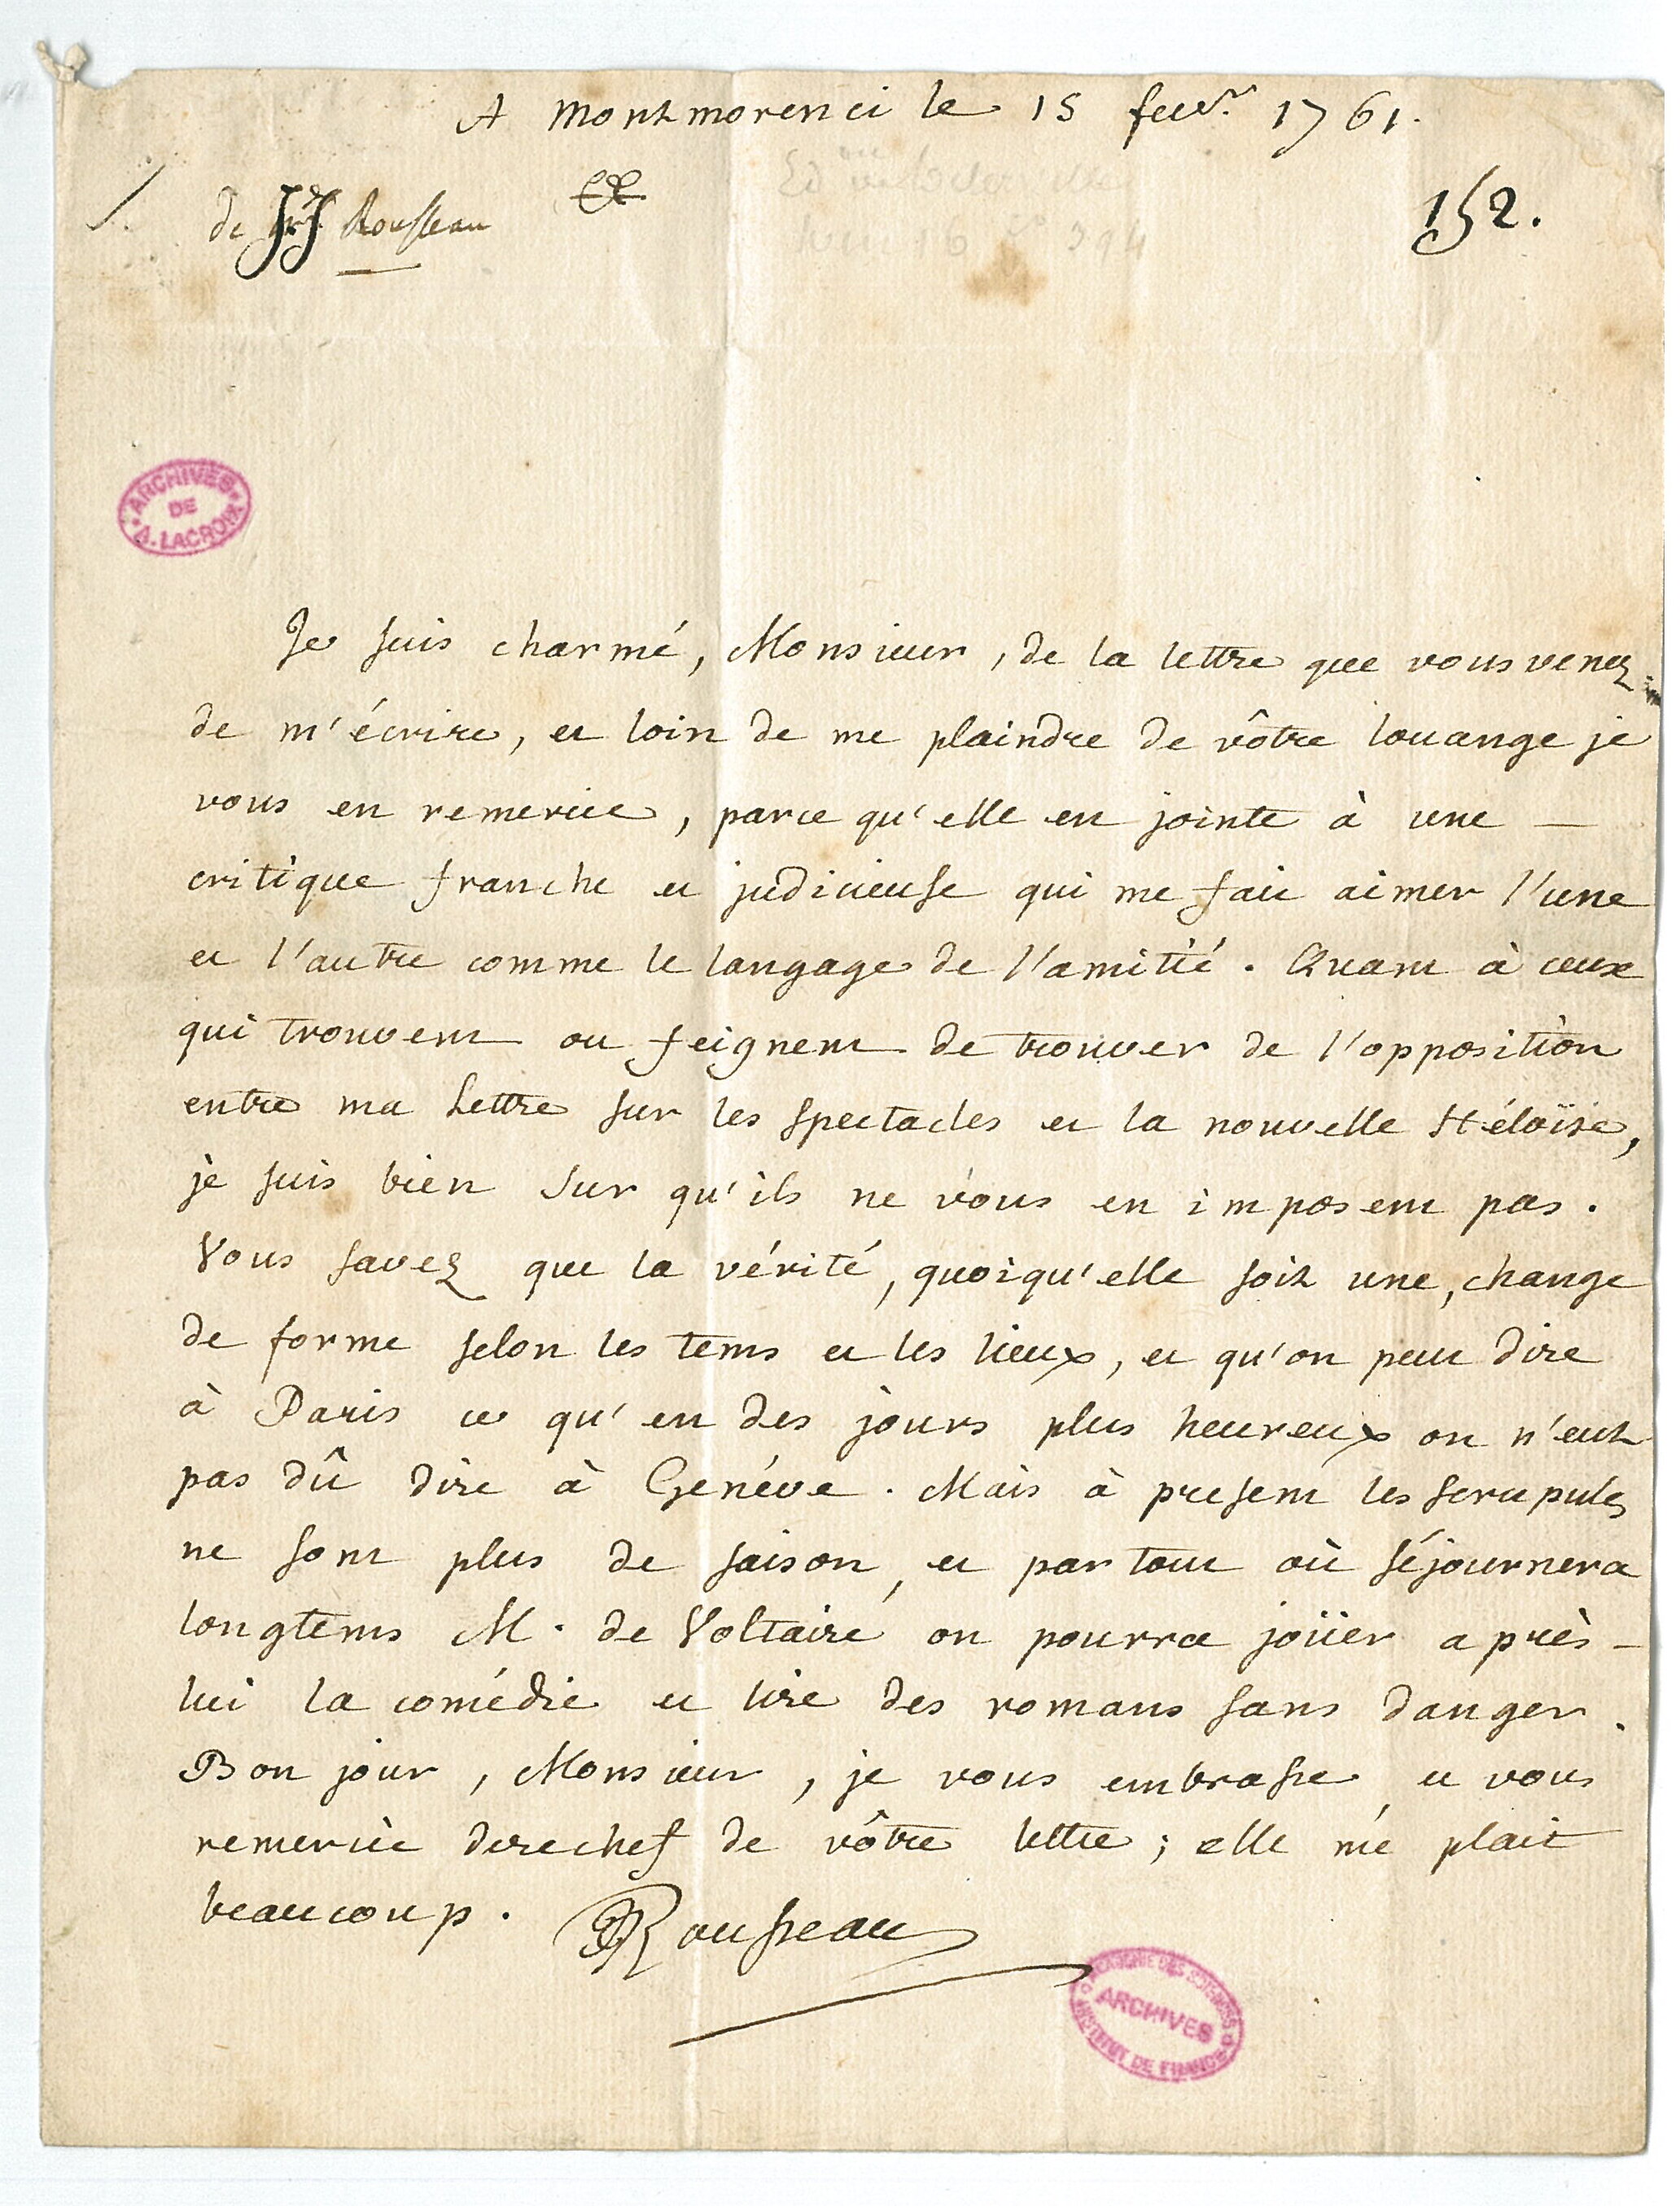 A Montmorenci le 15 fevr. 1761.
de JJ Rousseau
152.
ARCHIVES
DE
A. LACROIX
Je suis charmé, Monsieur, de la lettre que vous venez
de m'écrire, et loin de me plaindre de vôtre louange je
vous en remercie, parce qu'elle est jointe à une —
critique franche et judicieuse qui me fait aimer l'une
et l'autre comme le langage de l'amitié. Quant à ceux
qui trouvent ou feignent de trouver de l'opposition
entre ma Lettre sur les Spectacles et la nouvelle Héloïse,
je suis bien sur qu'ils ne vous en imposent pas.
Vous savez que la vérité, quoiqu'elle soit une, change
de forme selon les tems et les lieux, et qu'on peut dire
à Paris ce qu'en des jours plus heureux on n'eut
pas dû dire à Genéve. Mais à present les scrupules
ne sont plus de saison, et par tout où séjournera
longtems M. de Voltaire on pourra joüer après —
lui la comédie et lire des romans sans danger.
Bon jour, Monsieur, je vous embrasse, et vous
remercie derechef de vôtre lettre; elle me plait
beaucoup. JJRousseau
ACADEMIE DES SCIENCES
ARCHIVES
INSTITUT DE FRANCE